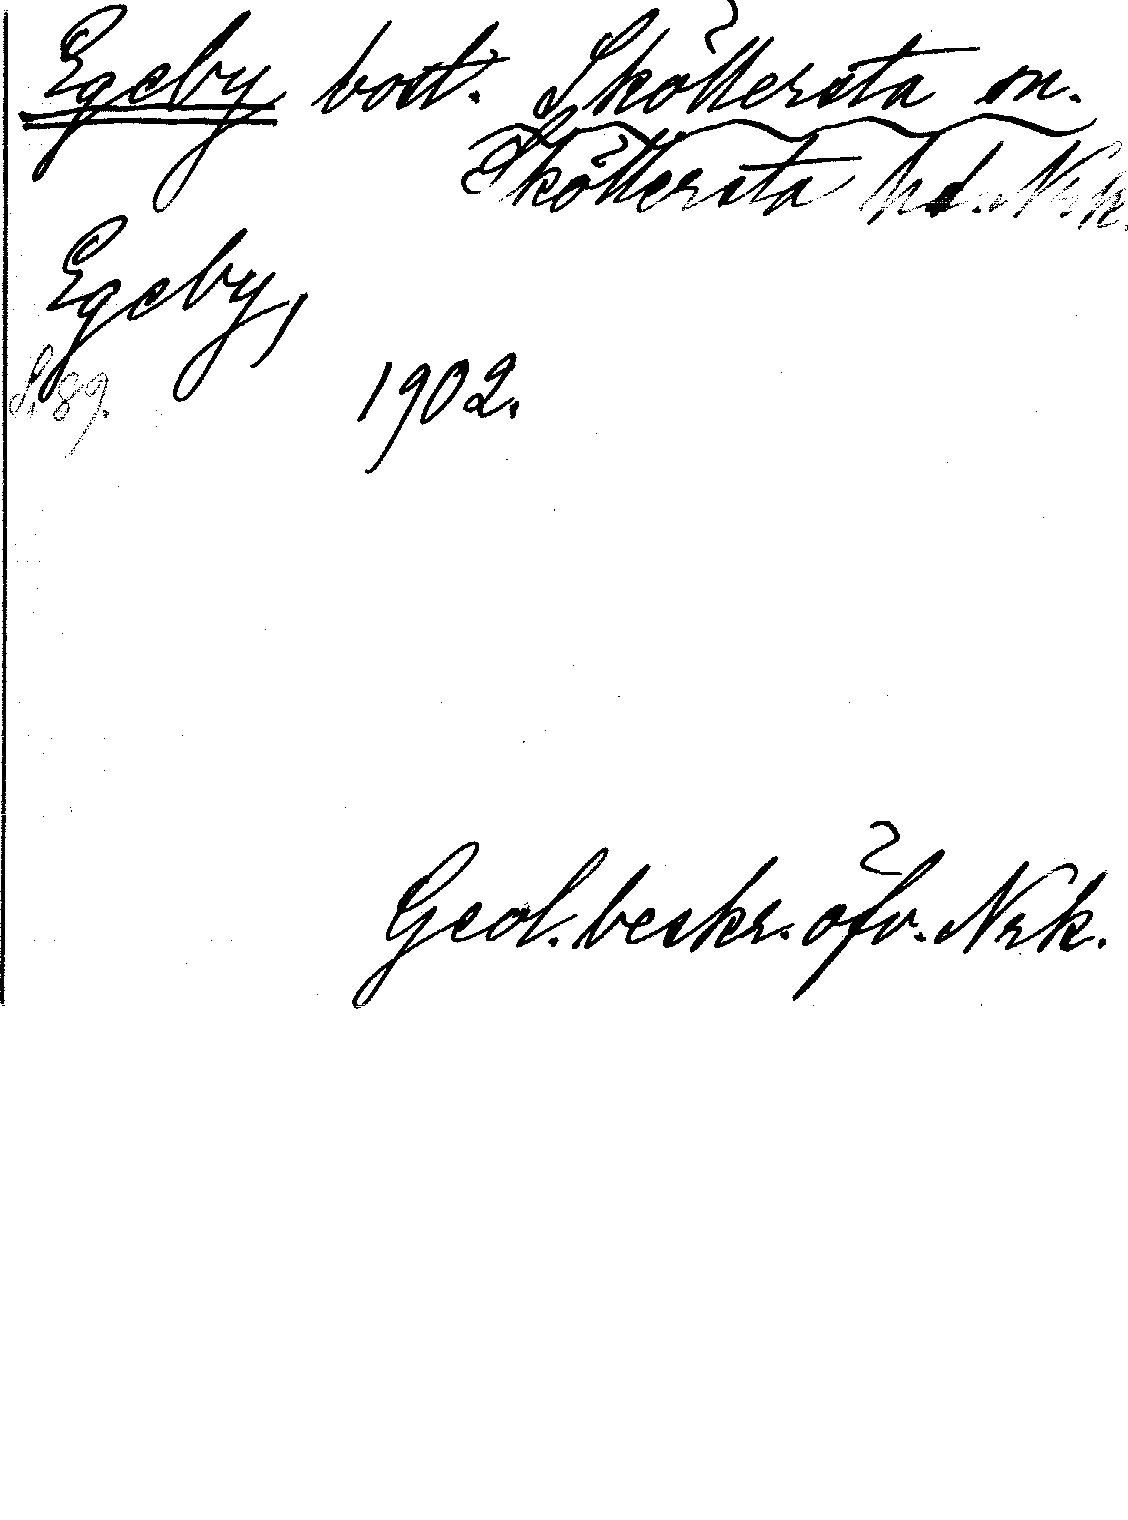 Egeby bost. Sköllersta sn.
Sköllersta hd. Nrk.
Egeby,
S. 89.
1902.
Geol. beskr. öfv. Nrk.